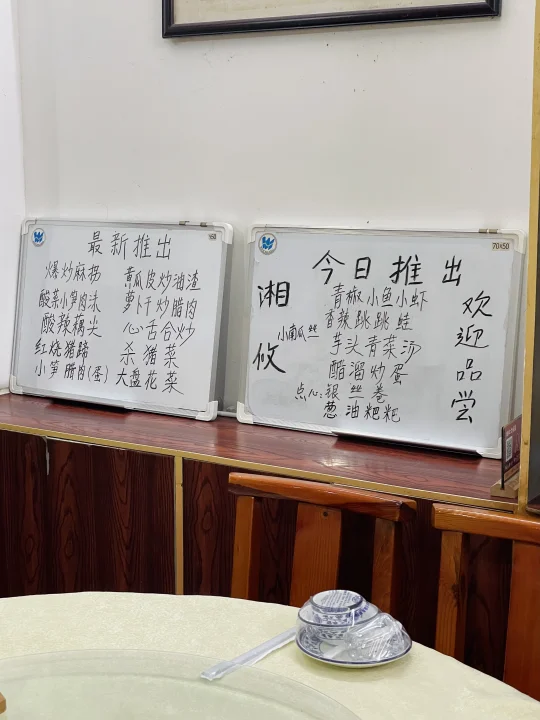 最新推出
爆炒麻拐 黄瓜皮炒油渣
酸菜小笋肉沫 萝卜干炒腊肉
酸辣藕尖 心舌合炒
红烧猪蹄 杀猪菜
小笋腊肉(蛋) 大盘花菜
今日推出
湘攸
青椒小鱼小虾
香辣跳跳蛙
小南瓜丝
芋头青菜汤
醋溜炒蛋
点心:银丝卷
葱油粑粑
欢迎品尝
70X50